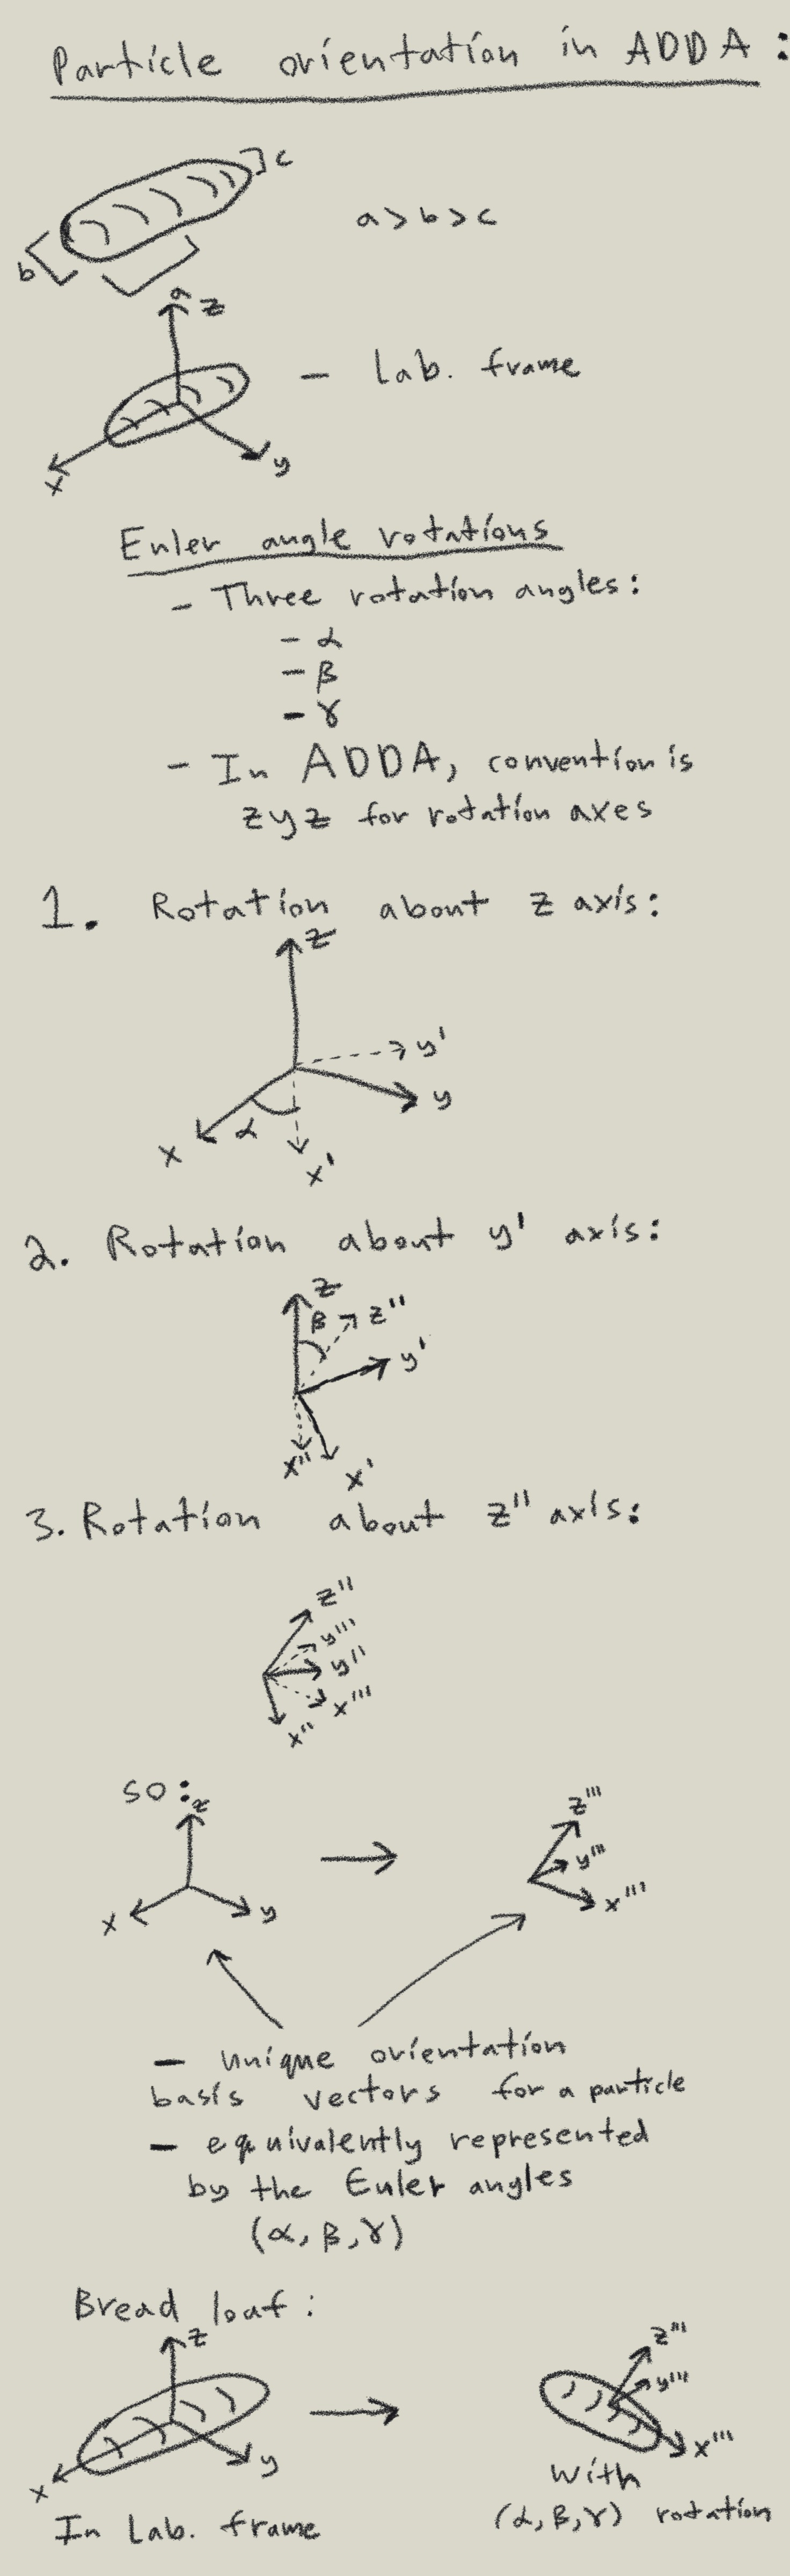 Particle orientation in ADDA:
c
a > b > c
b
a
z
- Lab. frame
x
y
Euler angle rotations
- Three rotation angles:
- α
- β
- γ
- In ADDA, convention is
zyz for rotation axes
1. Rotation about z axis:
z
y'
y
α
x
x'
2. Rotation about y' axis:
z
β
z''
y'
x''
x'
3. Rotation about z'' axis:
z''
y'''
y''
x'''
x''
so:
z
z'''
y'''
x
y
x'''
- unique orientation
basis vectors for a particle
- equivalently represented
by the Euler angles
(α, β, γ)
Bread loaf:
z
z'''
y'''
x
y
x'''
In Lab. frame
with
(α, β, γ) rotation